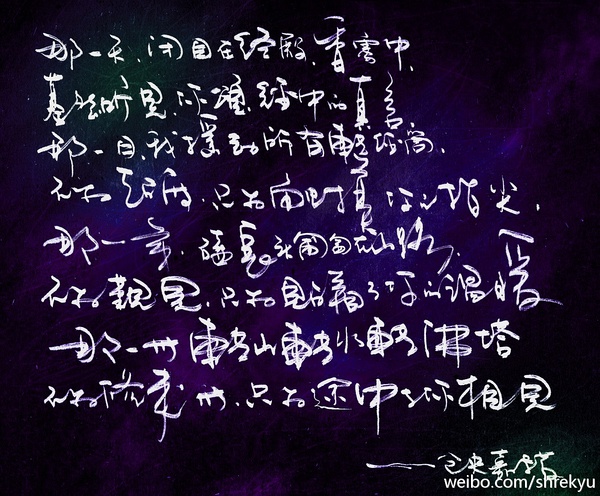 那一天，闭目在经殿，香雾中，
蓦然听见，你诵经中的真言
那一日，我摇动所有转经筒，
不为超度，只为触摸你的指尖，
那一年，磕长头匍匐在山路，
不为觐见，只为贴着了你的温暖
那一世 转山转水转佛塔
不为修来世，只为途中与你相见
——仓央嘉措
weibo.com/shrekyu